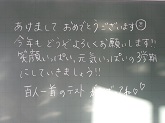 あけまして おめでとうございます
今年もどうぞよろしくお願いします!!
笑顔いっぱい元気いっぱいの3学期
にしていきましょう!!
百人一首のテスト がんばってね♡